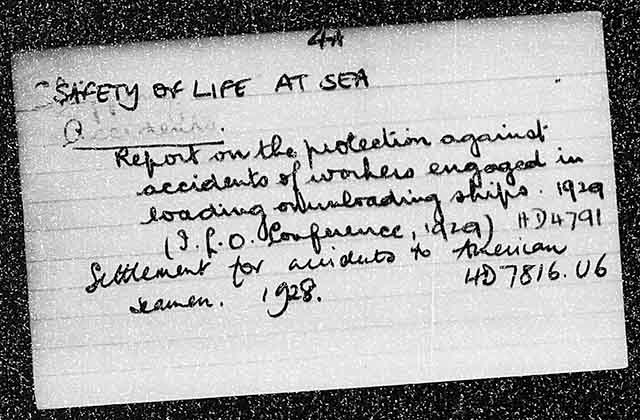 4A
SAFETY OF LIFE AT SEA
Accidents.
Report on the protection against
accidents of workers engaged in
loading or unloading ships. 1929
(I.L.O. Conference, 1929) HD4791
Settlement for accidents to American
seamen. 1928. HD7816.U6